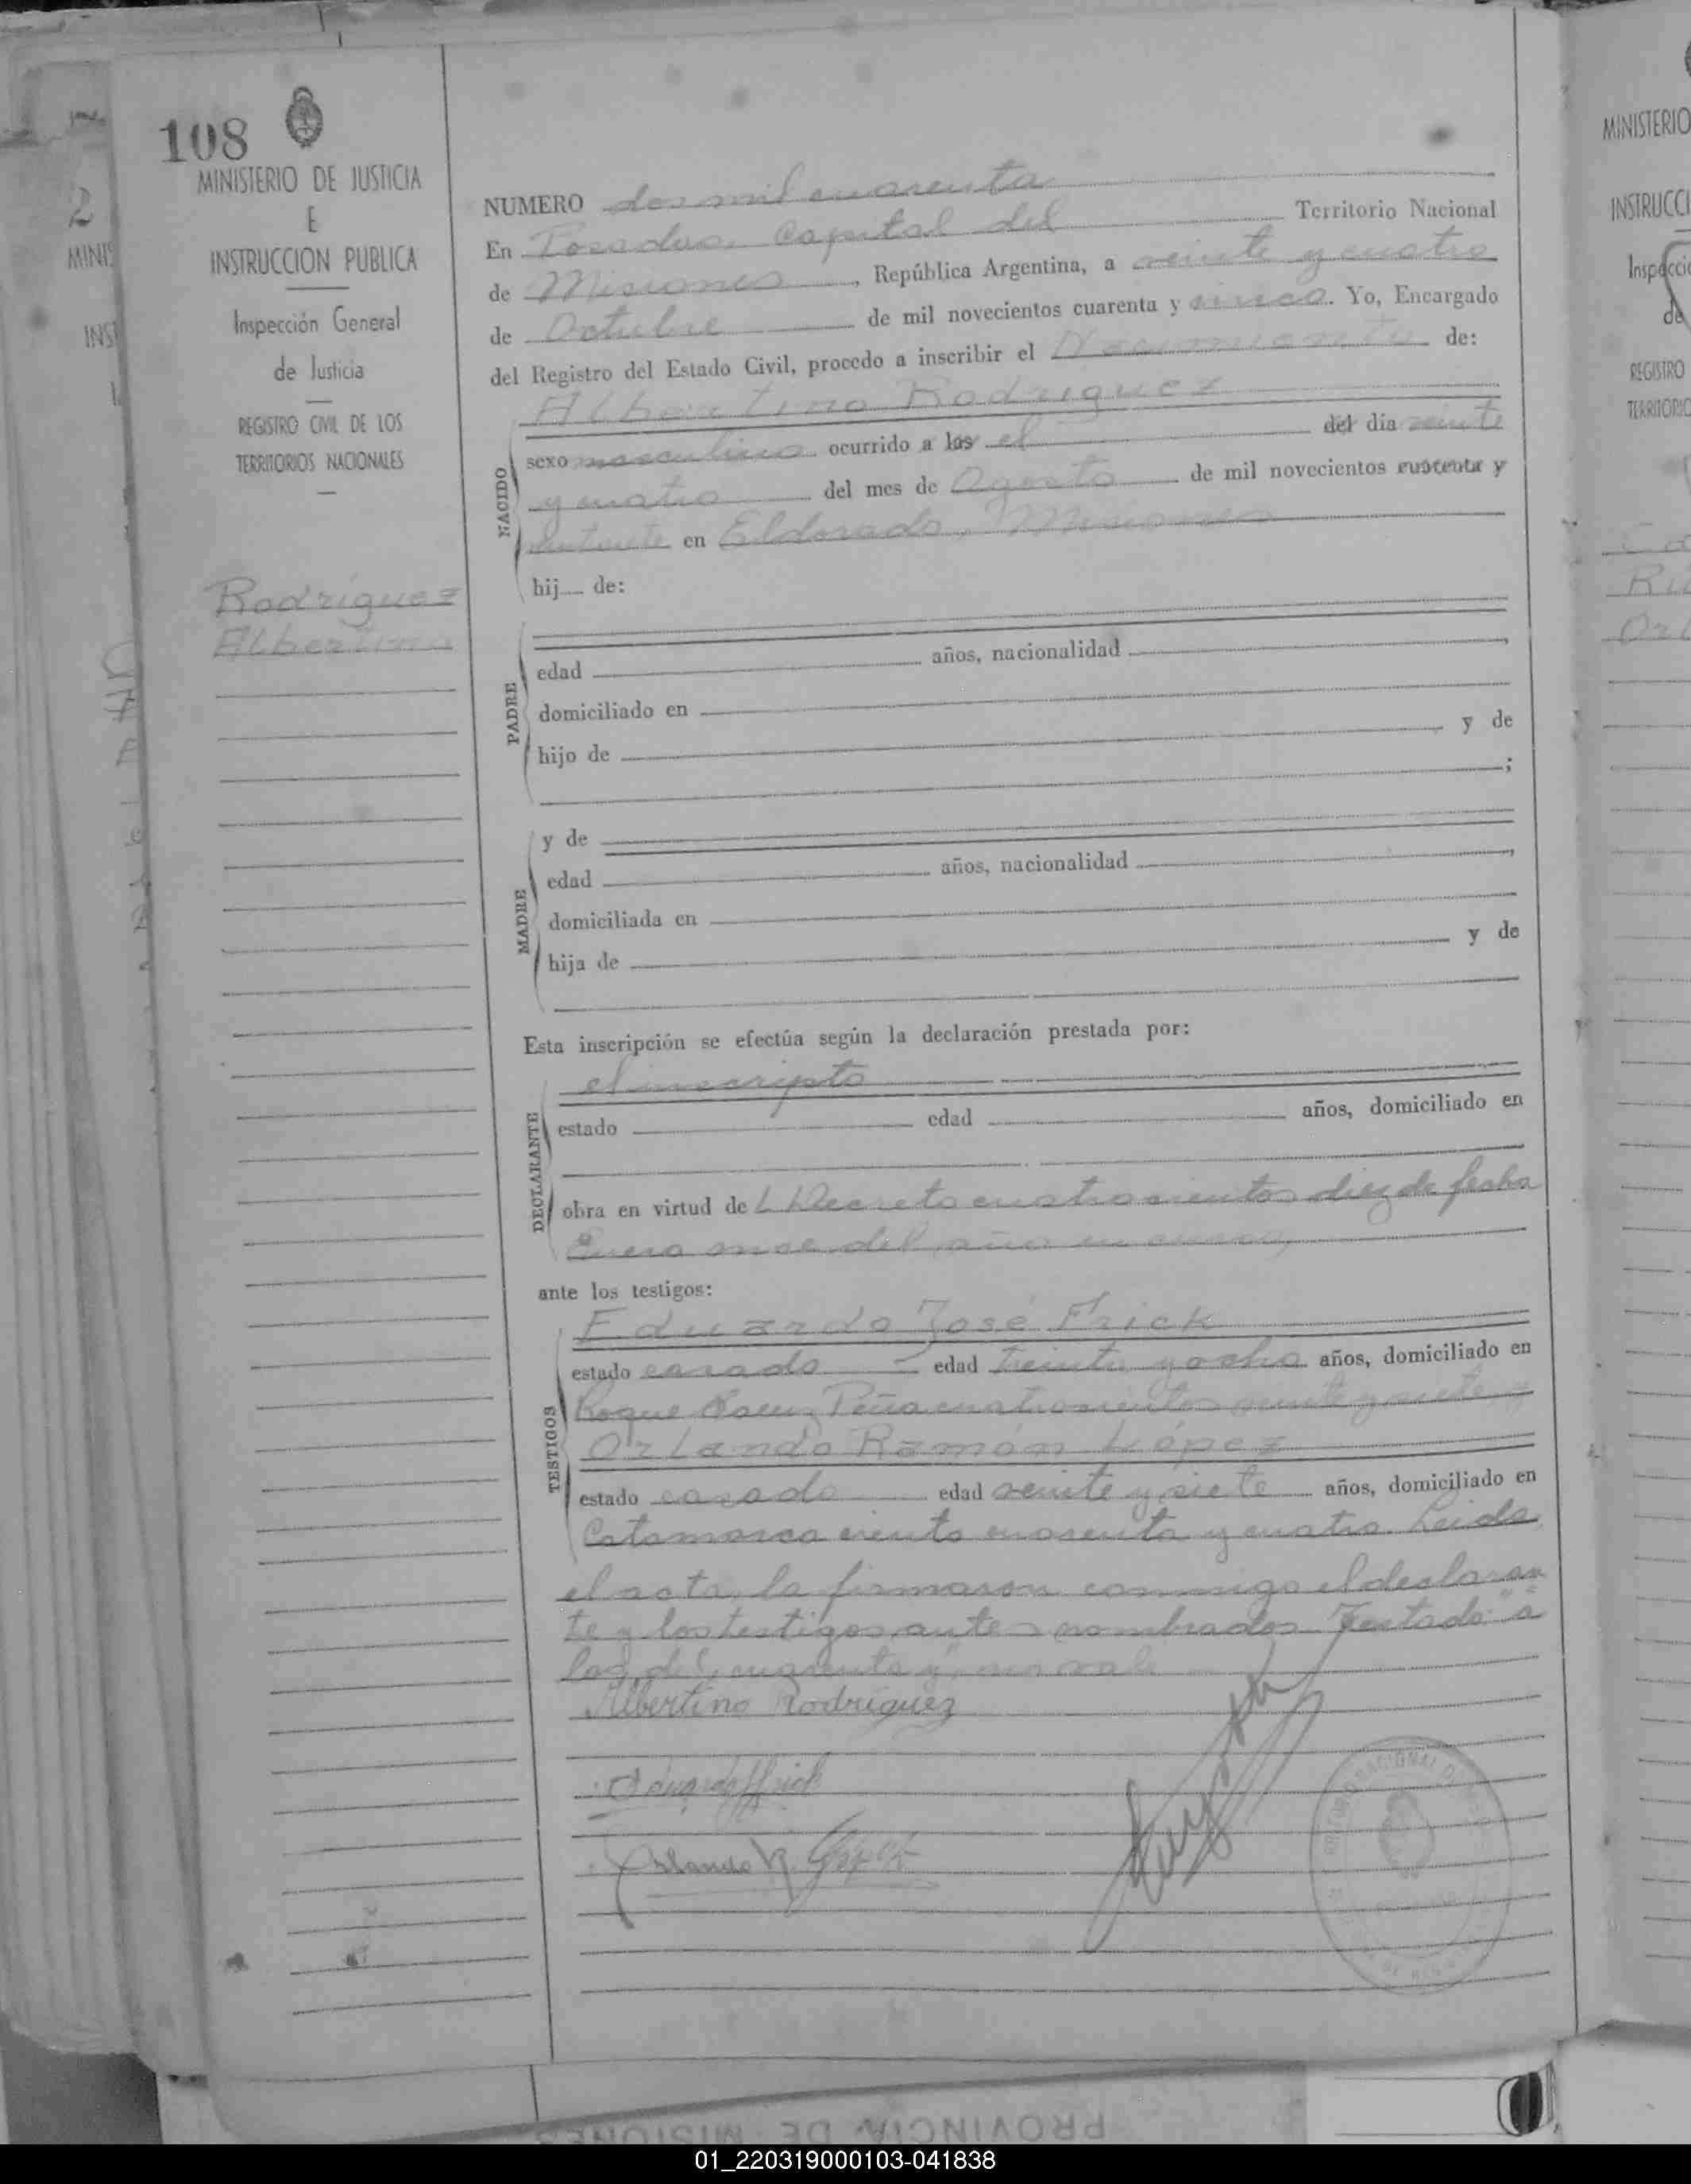 108
MINISTERIO DE JUSTICIA
E
INSTRUCCION PUBLICA
Inspección General
de Justicia
REGISTRO CIVIL DE LOS
TERRITORIOS NACIONALES
Rodríguez
Albertino
NUMERO dos mil cuarenta
En Posadas, Capital del Territorio Nacional
de Misiones, República Argentina, a veinte y cuatro
de Octubre de mil novecientos cuarenta y cinco. Yo, Encargado
del Registro del Estado Civil, procedo a inscribir el Nacimiento de:
Albertino Rodríguez
NACIDO
sexo masculino ocurrido a las el del día veinte
y cuatro del mes de Agosto de mil novecientos cuarenta y
en Eldorado, Misiones
hij de:
PADRE
edad años, nacionalidad ,
domiciliado en
hijo de y de
;
MADRE
y de
edad años, nacionalidad ,
domiciliada en
hija de y de
Esta inscripción se efectúa según la declaración prestada por:
DECLARANTE
el inscripto
estado edad años, domiciliado en
obra en virtud de l Decreto cuatrocientos diez de fecha
Enero once del año en curso,
ante los testigos:
TESTIGOS
Eduardo José Frick
estado casado edad treinta y ocho años, domiciliado en
Roque Saenz Peña cuatrocientos veinte y siete y
Orlando Ramón López
estado casado edad veinte y siete años, domiciliado en
Catamarca ciento cuarenta y cuatro. Leida
el acta, la firmaron conmigo el declaran
te y los testigos antes nombrados. Testado: "a
las, del, cuarenta y", no vale
Albertino Rodríguez
Eduardo J Frick
Orlando R. López
MINISTERIO
INSTRUCCI
Inspecció
de
REGISTRO
TERRITORIO
PROVINCIA DE MISIONES
01_220319000103-041838